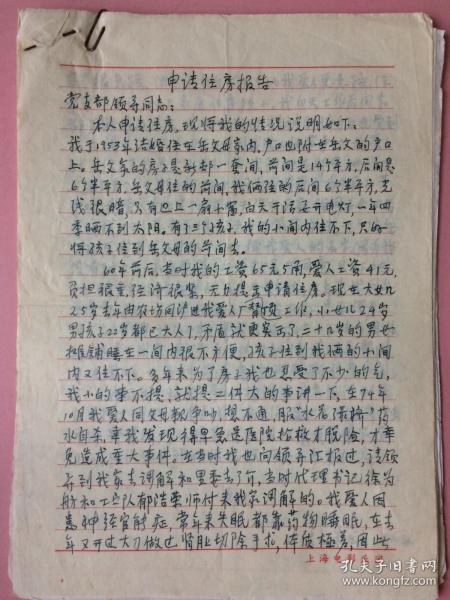 申请住房报告
党支部领导同志：
本人申请住房，现将我的情况说明如下：
我于1953年结婚住在岳父母家内，户口也附在岳父的户口
上。岳父家的房子是新邨一套间，前间是14个平方，后间是
6个半平方，岳父母住的前间，我俩住的后间6个半平方，光
线很暗，只有边上一扇小窗，白天干活要开电灯，一年四
季晒不到太阳。有了三个孩子，我的小间内住不下，只好
将孩子住到岳父母的前间去。
60年前后，当时我的工资65元5角，爱人工资41元，
负担很重，经济很紧，无力提出申请住房。现在大女儿
25岁去年由农场回沪进我爱人厂替顶工作，小女儿24岁
男孩子22岁都已大人了，矛盾就更突击了，二十几岁的男女
摊铺睡在一间内很不方便，孩子住到我俩的小间
内又住不下。多年来为了房子我也忍受了不少的气，
我小的事不提，就提二件大的事讲一下，在74年
10月我爱人同父母亲争吵，想不通，服"水 "药
水自杀，事我发现得早急送医院抢救才脱险，才幸
免造成重大事件。在当时我也向领导汇报过，请领
导到我家去调解和里委去了介，当时代理书记徐为
舫和工宣队郁浩荣师付来我家调解的。我爱人因
患神经官能症，常年来失眠都靠药物睡眠，在去
年又开过大刀做过肾脏切除手术，体质極差，因此
上海电影
孔夫子旧书网
kongfz.com